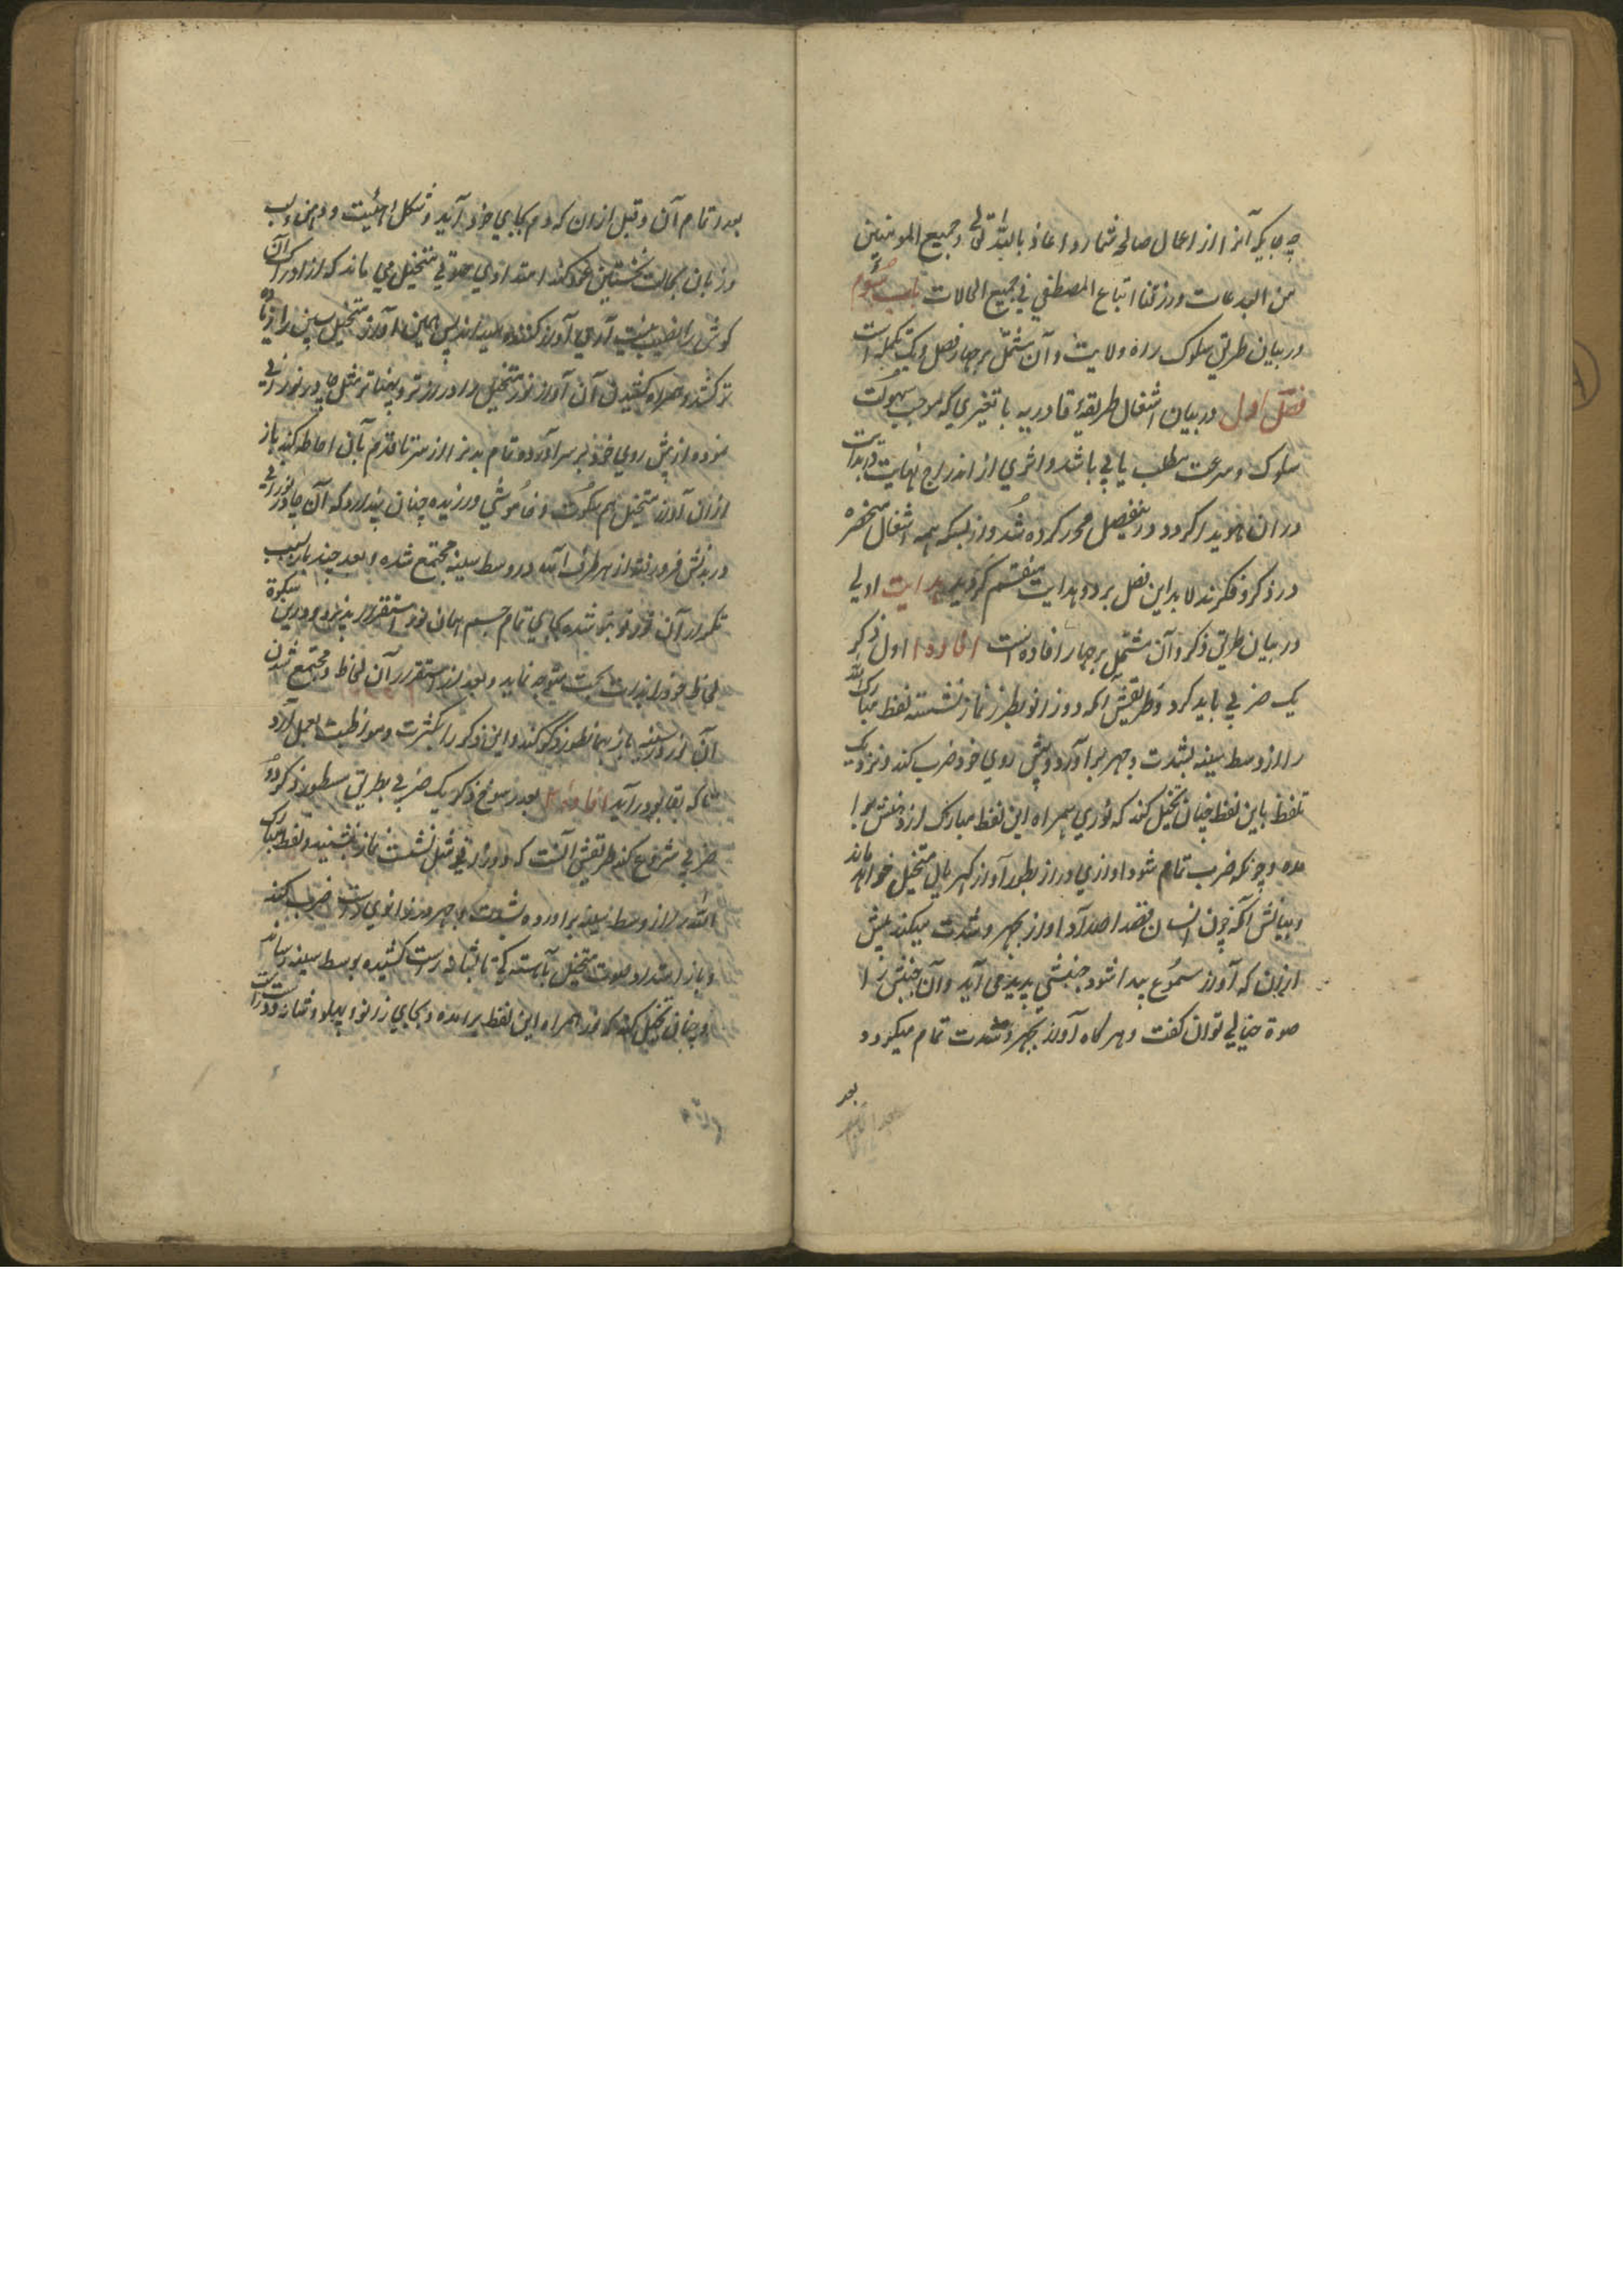 چه جایکه آنرا از اعمال صالحه شمارد اعاذنا الله تعالی وجمیع المومنین
من البدعات ورزقنا اتباع المصطفی فی جمیع الحالات باب سوم
در بیان طریق سلوک راه ولایت وآن مشتمل بر چهار فصل ویک تکمله است
فصل اول در بیان اشغال طریقهٔ قادریه با تغیری که موجب سهولت
سلوک و سرعت مطلب یابی باشد واثری از اندراج نهایت در بدایت
دران هویدا کردد درینفصل محرر کرده شد واز بسکه همه اشغال منحصره
در ذکر وفکرند لابد این فصل بر دو هدایت منقسم کردید هدایت اولی
در بیان طریق ذکر وآن مشتمل بر چهار افاده است افاده ا اول ذکر
یک ضربی باید کرد وطریقش آنکه دو زانو بطرز نماز نشسته لفظ مبارک الله
را از وسط سینه بشدت وجهر برآورده پیش روی خود ضرب کند ونزدیک
تلفظ باین لفظ چنان تخیل کند که نوری همراه این لفظ مبارک از دهنش برا
مده وچونکه ضرب تمام شود اوازی دراز بطور آواز کهریال متخیل خواهد ماند
وبیانش آنکه چون انسان قصد اصدار اواز بجهر وشدت میکند پیش
ازان که آواز مسموع پیدا شود جنبشی پدید می آید وآن جنبش را
صوة خیالی توان کفت وهر کاه آواز بجهر وشدت تمام میکردد
بعد
بعد اتمام آن وقبل ازان که دم بجای خود آید وشکل وهیئت ودهن ولب
وزبان بحالت نخستین عود کند امتدادی صوتی متخیل می ماند که از ادراک آن
کوش را نصیب نیست آری آواز کننده میداند پس همین آواز متخیل پسین را زیاده
تر کشد وهمراه کشیدن آن آواز نور متخیل را دراز تر وپهناتر مثل چادر نورانی
نموده از پیش روی خود بر سر آورده تمام بدنرا از سر تا قدم بآن احاطه کند باز
ازان آواز متخیل هم سکوت وخاموشی ورزیده چنان پندارد که آن چادر نورانی
در بدنش فرو رفته از هر طرف آمده در وسط سینه مجتمع شده وبعد چند بار بسبب
تکرار آن نور تو بتو شده بجای تمام جسم همان نور استقرار پذیرد ودرین سکوة
لحاظ خود را بذات بحت متوجه نماید وبعد از استقرار آن لحاظ ومجتمع شدن
آن نور در سینه باز همانطور ذکر کند واین ذکر را بکثرت ومواظبت بعمل آرد
تا که بقابو درآید افاده ۲ بعد رسوخ ذکر یک ضربی بطریق مسطور ذکر دو
ضربی شروع کند طریقش آنست که دو زانو مثل نشست نماز بنشیند ولفظ مبارک
الله را از وسط سینه براورده بشدت وجهر در زانوی راست ضرب کند
وباز امتداد صوت متخیل بآهستکی تا بشانهٔ راست کشیده بوسط سینه رساند
وچنان تخیل کند که نور همراه این لفظ برامده وبجای زانو وپهلو وشانه ودست راست